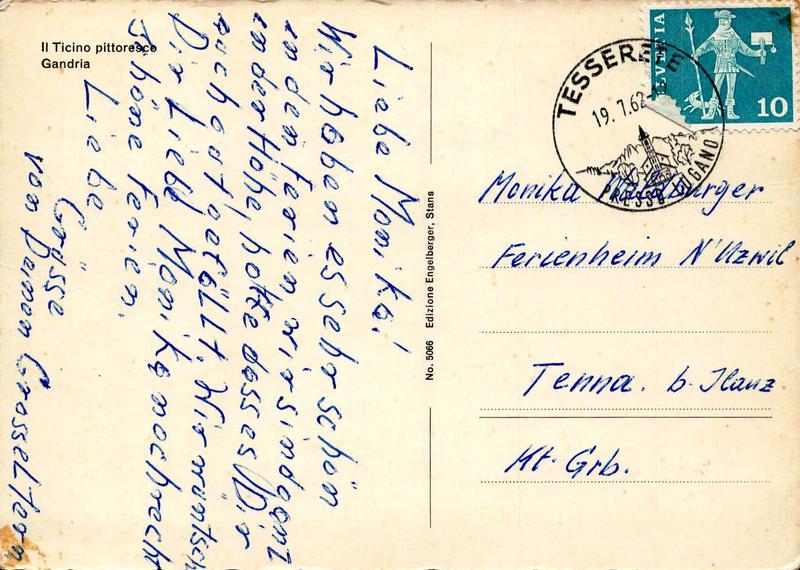 Il Ticino pittoresco
Gandria
Liebe Monika!
Wir haben es sehr schön
in den Ferien wir sind ganz
in der Höhe, hoffe dass es Dir
auch gut gefällt. Wir wüntsch
Dir liebe Monika noch recht
schöne Ferien.
Liebe
Grüsse
von Deinen Grosseltern
No. 5066 Edizione Engelberger, Stans
HELVETIA
10
TESSERETE
19.7.62
PRESSO LUGANO
Monika
Ferienheim N'Uzwil
Tenna. b. Ilanz
Kt. Grb.